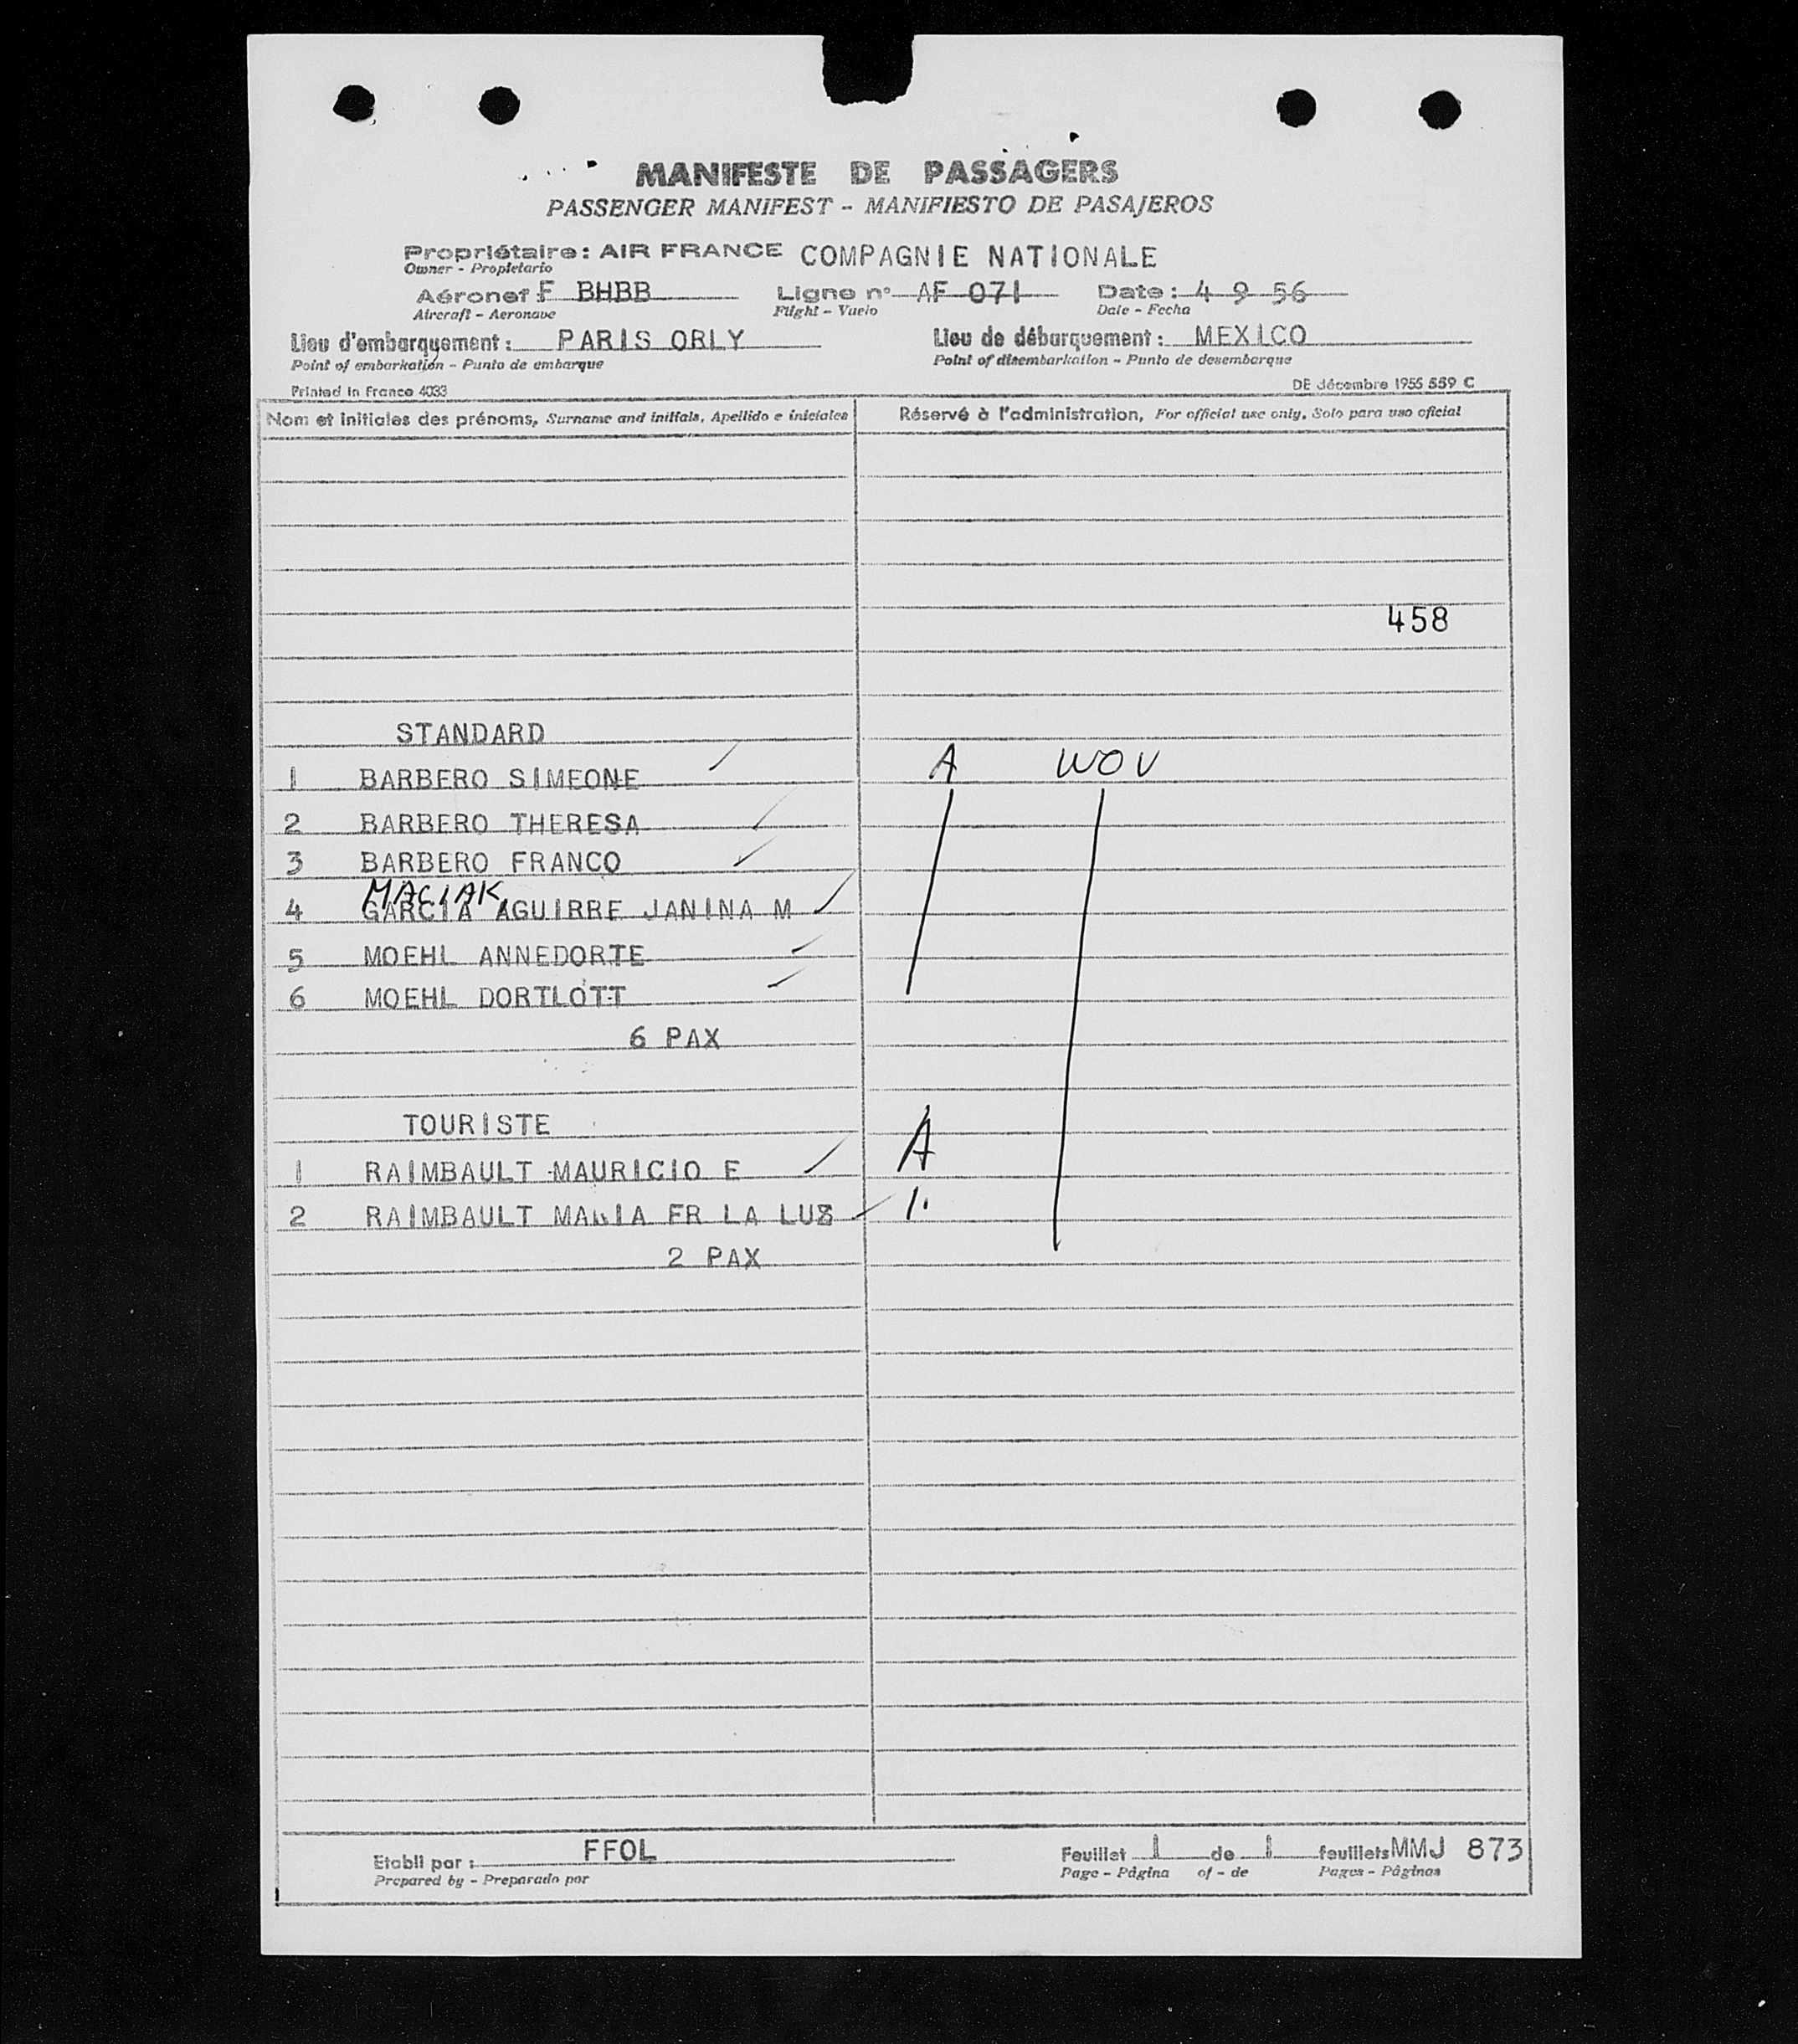 MANIFESTE DE PASSAGERS
PASSENGER MANIFEST - MANIFIESTO DE PASAJEROS
Propriétaire: AIR FRANCE COMPAGNIE NATIONALE
Owner - Propietario
Aéronef: F BHBB Ligne n° AF 071 Date: 4 9 56
Aircraft - Aeronave Flight - Vuelo Date - Fecha
Lieu d'embarquement: PARIS ORLY Lieu de débarquement: MEXICO
Point of embarkation - Punto de embarque Point of disembarkation - Punto de desembarque
Printed in France 4033 DE décembre 1955 559 C
Nom et initiales des prénoms, Surname and initials, Apellido e iniciales Réservé à l'administration, For official use only, Solo para uso oficial
458
STANDARD
1 BARBERO SIMEONE A WOV
2 BARBERO THERESA
3 BARBERO FRANCO
MACIAK
4 GARCIA AGUIRRE JANINA M
5 MOEHL ANNEDORTE
6 MOEHL DORTLOTT
6 PAX
TOURISTE
1 RAIMBAULT MAURICIO E A
2 RAIMBAULT MARIA FR LA LUZ
2 PAX
Etabli par: FFOL Feuillet 1 de 1 feuillets MMJ 873
Prepared by - Preparado por Page - Página of - de Pages - Páginas